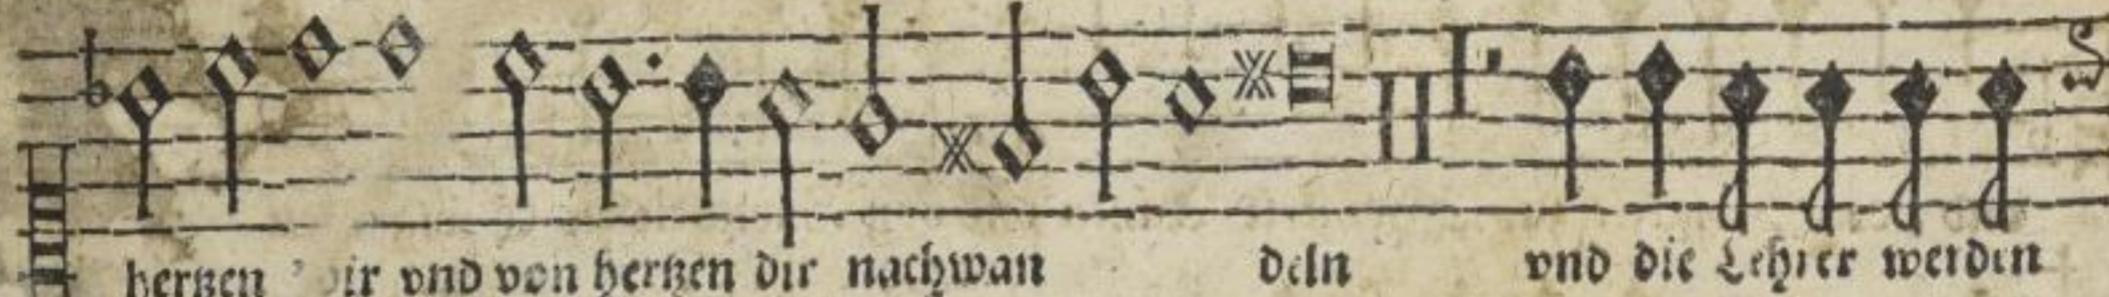 hertzen dir vnd von hertzen dir nachwan deln vnd die Lehrer werden